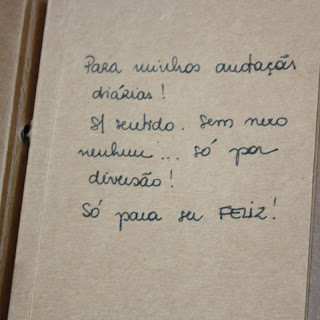 Para minhas anotações
diárias!
S/ sentido. Sem nexo
nenhum... só por
diversão!
Só para ser FELIZ!